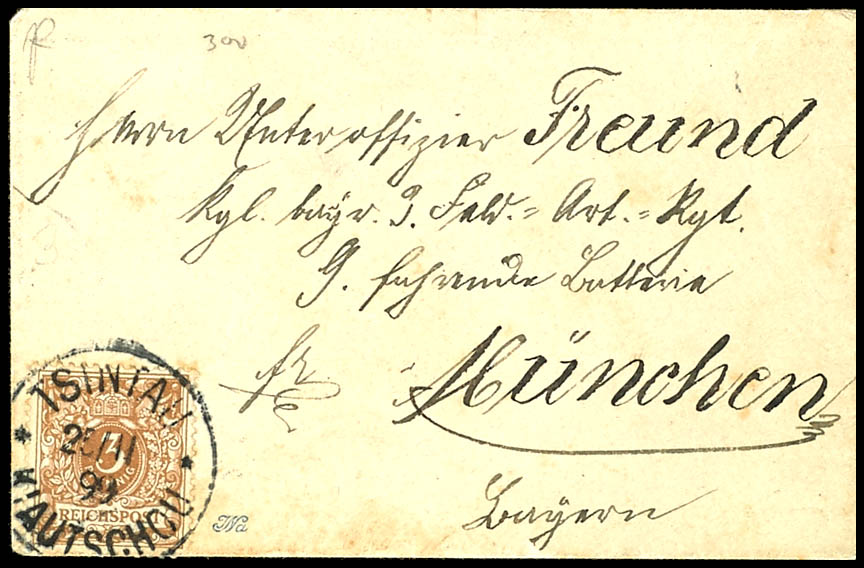 300
Herrn Unteroffizier Freund
Kgl. bayr. 3. Feld.= Art.= Rgt.
9. fahrende Batterie
München
Bayern
TSINTAU
99
KIAUTSCHOU
3
REICHSPOST